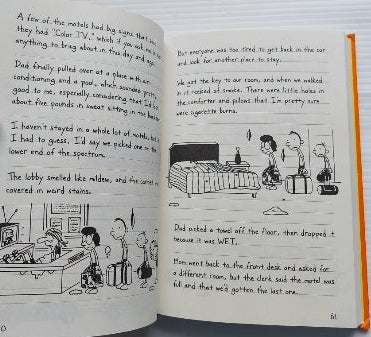 A few of the motels had big signs that
they had "Color TV," which if you ask me is
anything to brag about in this day and age.
Dad finally pulled over at a place with air
conditioning and a pool, which sounded pretty
good to me, especially considering that I'd
about five pounds in sweat sitting in the
I haven't stayed in a whole lot of motels, but if
I had to guess, I'd say we picked one on the
lower end of the spectrum.
The lobby smelled like mildew, and the carpet was
covered in weird stains.
But everyone was too tired to get back in the car
and look for another place to stay.
We got the key to our room, and when we walked
in it reeked of smoke. There were little holes
in the comforter and pillows that I'm pretty sure
were cigarette burns.
Dad picked a towel off the floor, then dropped it
because it was WET.
Mom went back to the front desk and asked for
a different room, but the clerk said the motel was
full and that we'd gotten the last one.
61